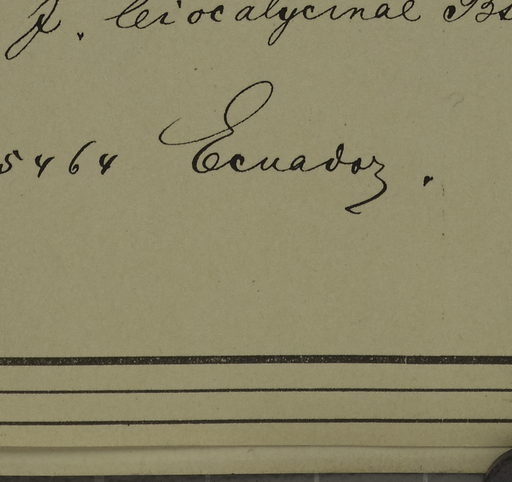 f. leiocalycinal Bs
5464 Ecuador.